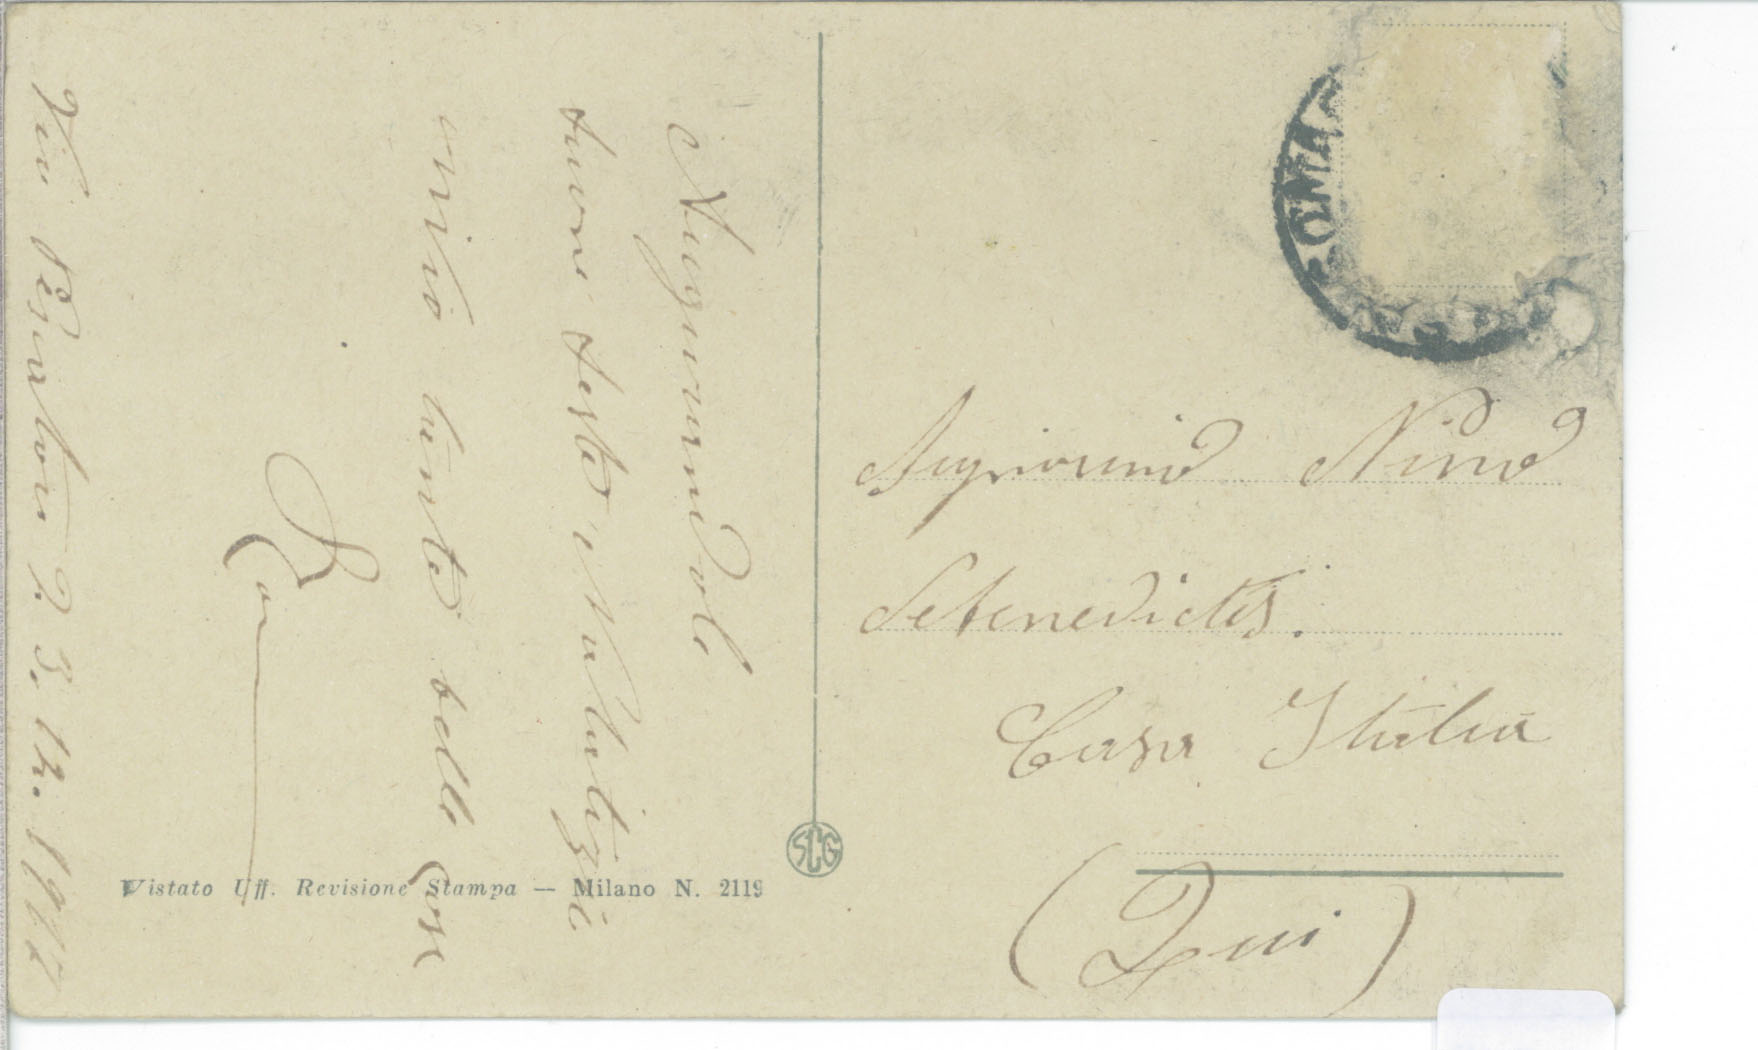 Augurandole
buone feste Natalizie
invio tante belle cose
Via
3. 12. 1917
Vistato Uff. Revisione Stampa — Milano N. 2119
SCG
ROMA
Signorino Nino
Debenedictis.
Casa Italia
(Qui)